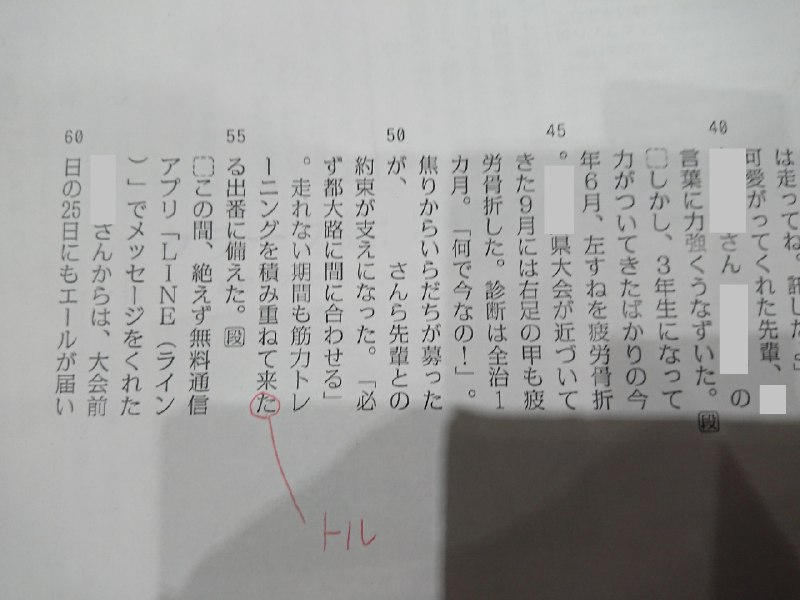 は走ってね。託した。」
可愛がってくれた先輩、
40
さん　の
言葉に力強くうなずいた。段
しかし、3年生になって
力がついてきたばかりの今
年6月、左すねを疲労骨折
45
。県大会が近づいて
きた9月には右足の甲も疲
労骨折した。診断は全治1
カ月。「何で今なの！」。
焦りからいらだちが募った
50
が、　さんら先輩との
約束が支えになった。「必
ず都大路に間に合わせる」
。走れない期間も筋力トレ
ーニングを積み重ねて来た
トル
55
る出番に備えた。段
この間、絶えず無料通信
アプリ「LINE（ライン
）」でメッセージをくれた
さんからは、大会前
60
日の25日にもエールが届い